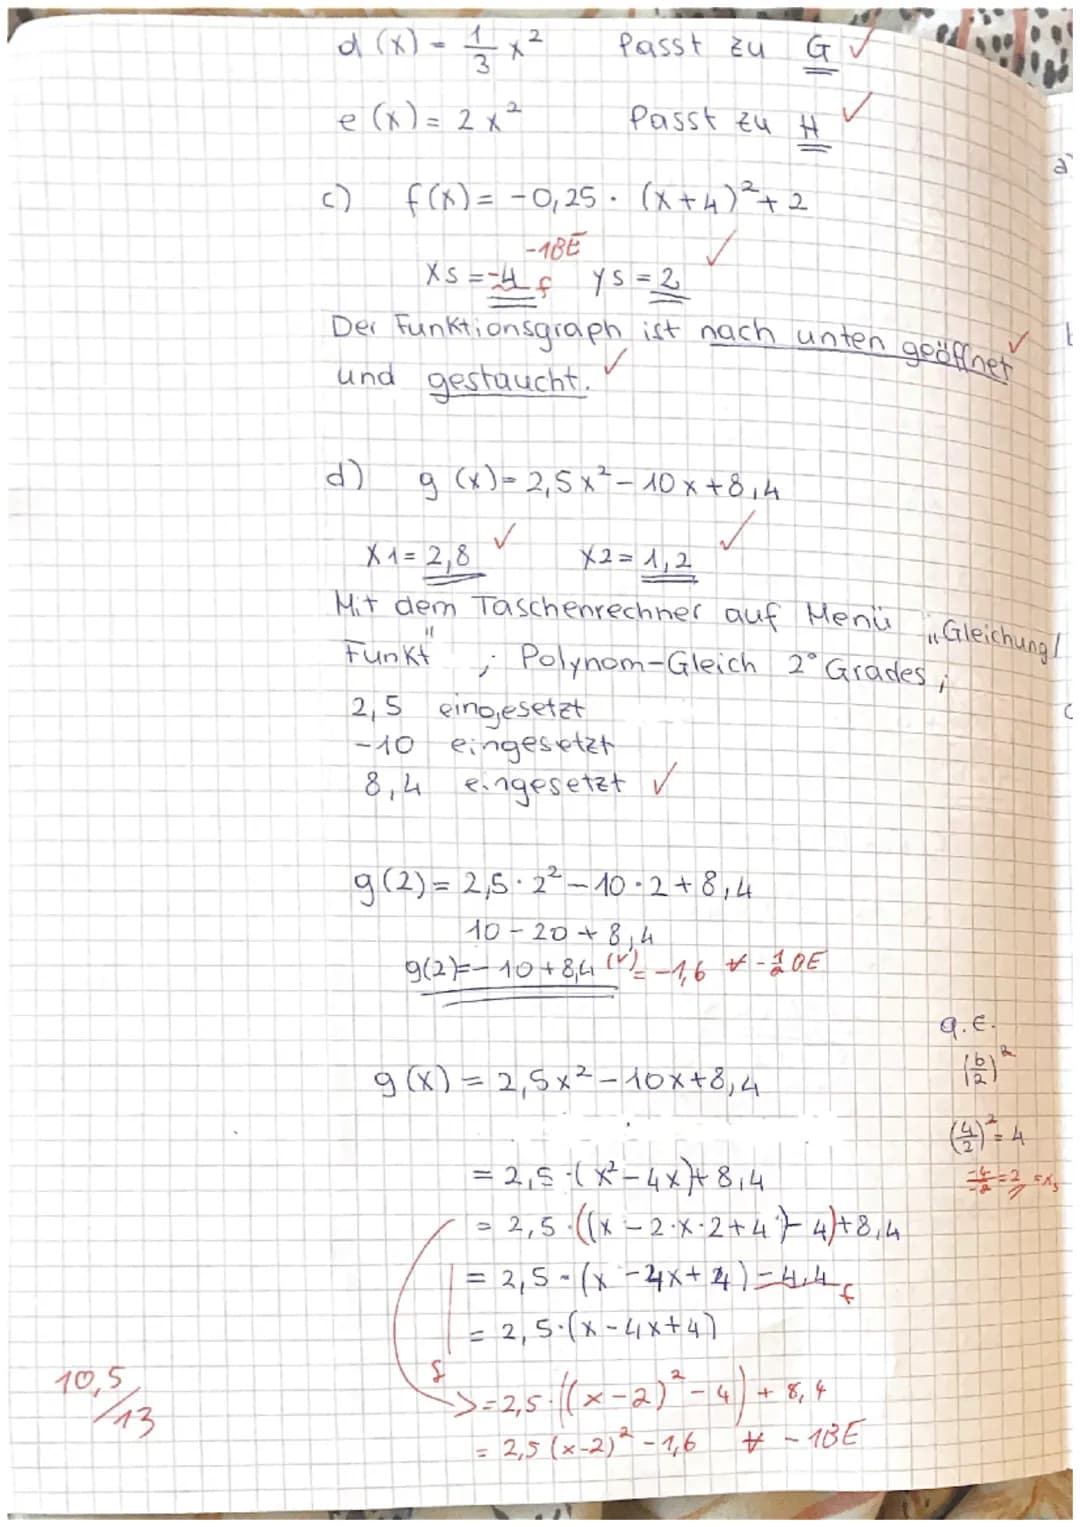 d (x) = 1/3 x² Passt zu G ✓
e (x) = 2x² Passt zu H ✓
c) f(x) = -0,25 · (x+4)² + 2
-1BE ✓
xs = -4 f ys = 2
Der Funktionsgraph ist nach unten geöffnet ✓
und gestaucht. ✓
d) g (x) = 2,5x² - 10x + 8,4
x1 = 2,8 ✓ x2 = 1,2 ✓
Mit dem Taschenrechner auf Menü „Gleichung/
Funkt" ; Polynom-Gleich 2° Grades ;
2,5 eingesetzt
-10 eingesetzt
8,4 eingesetzt ✓
g(2) = 2,5 · 2² - 10 · 2 + 8,4
10 - 20 + 8,4
g(2) = -10 + 8,4 (✓) = -1,6 ∀ -1/2 BE
q.E.
(b/2)²
g (x) = 2,5x² - 10x + 8,4
(4/2)² = 4
= 2,5 · (x² - 4x) + 8,4
-4/-2 = 2 = xs
= 2,5 · ((x - 2·x·2 + 4) - 4) + 8,4
= 2,5 · (x - 4x + 4) - 4,4 f
= 2,5 · (x - 4x + 4)
f
10,5/13
> = 2,5 · ((x-2)² - 4) + 8,4
= 2,5 (x-2)² - 1,6 ∀ - 1BE